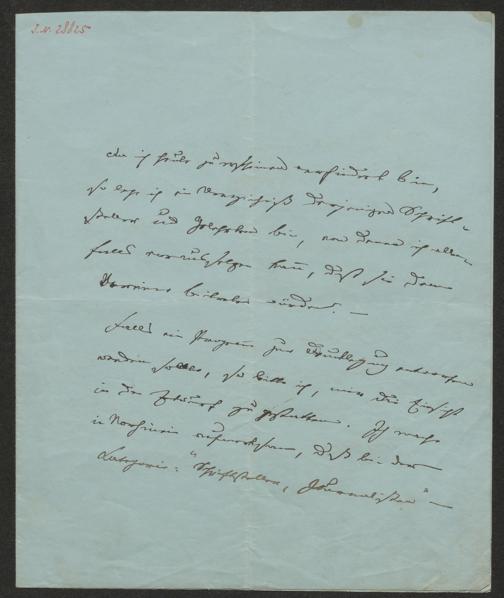 I. N. 28825
da ich heute zu erscheinen verhindert bin,
so lege ich ein Verzeichniß derjenigen Schrift-
steller und Gelehrten bei, von denen ich allen-
falls voraussetzen kann, daß sie dem
Vereine beitreten würden. —
Falls ein Programm zur Drucklegung
werden sollte, so bitte ich, mir die Einsicht
in den Entwurf zu gestatten. Ich mache
im Vorhinein aufmerksam, daß bei der
Categorie: "Schriftsteller, Journalisten" —